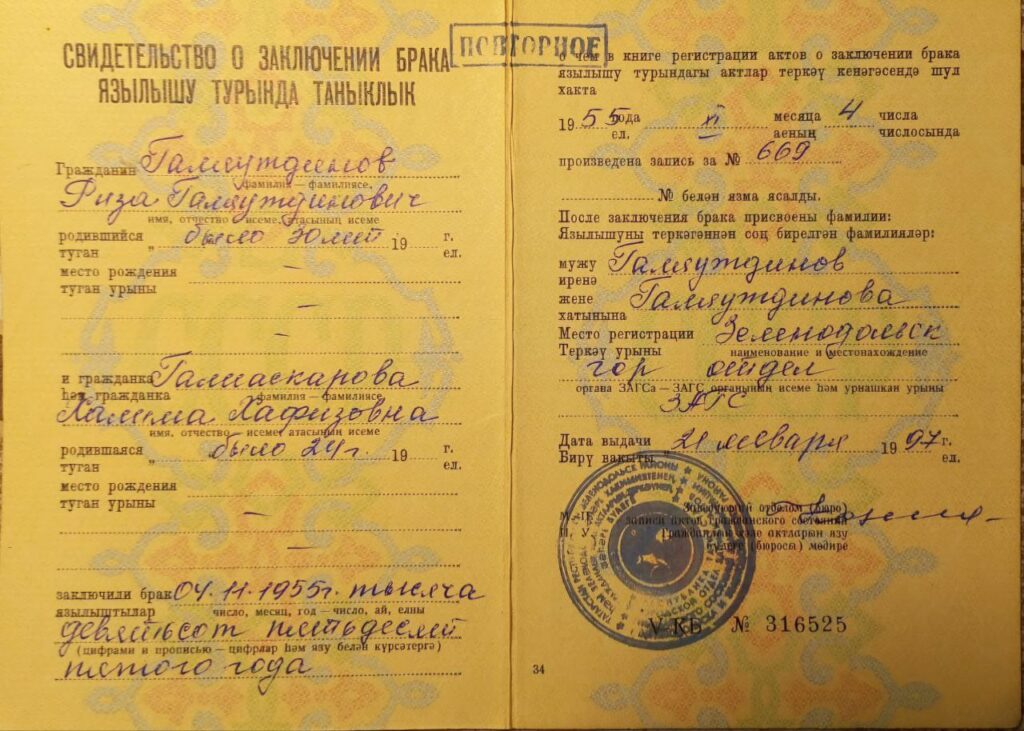 СВИДЕТЕЛЬСТВО О ЗАКЛЮЧЕНИИ БРАКА
ЯЗЫЛЫШУ ТУРЫНДА ТАНЫКЛЫК
Гражданин Гамиуждинов
фамилия — фамилиясе,
Риза Гамиуждинович
имя, отчество — исеме, атасының исеме
родившийся было 30 лет 19 г.
туган " ел.
место рождения —
туган урыны
—
и гражданка Галиаскарова
һәм гражданка фамилия — фамилиясе
Халима Хафизовна
имя, отчество — исеме, атасының исеме
родившаяся было 24 г. 19 г.
туган " ел.
место рождения
туган урыны —
—
заключили брак 04.11.1955г. тысяча
язылыштылар число, месяц, год — число, ай, елны
девятьсот пятьдесят
(цифрами и прописью — цифрлар һәм язу белән күрсәтергә)
пятого года
ПОВТОРНОЕ
о чем в книге регистрации актов о заключении брака
язылышу турындагы актлар теркәү кенәгәсендә шул
хакта
1955 года XI месяца 4 числа
ел. аеның числосында
произведена запись за № 669
№ белән язма ясалды.
После заключения брака присвоены фамилии:
Язылышуны теркәгәннән соң бирелгән фамилияләр:
мужу Гамиуждинов
иренә
жене Гамиуждинова
хатынына
Место регистрации Зеленодольск
Теркәү урыны наименование и местонахождение
гор отдел
органа ЗАГСа — ЗАГС органының исеме һәм урнашкан урыны
ЗАГС
Дата выдачи " 21 января 1997 г.
Бирү вакыты " ел.
М. П. Заведующий отделом (бюро)
записи актов гражданского состояния
П. У. Гражданлык хәле актларын язу
бүлеге (бюросы) мөдире
V-КБ № 316525
34